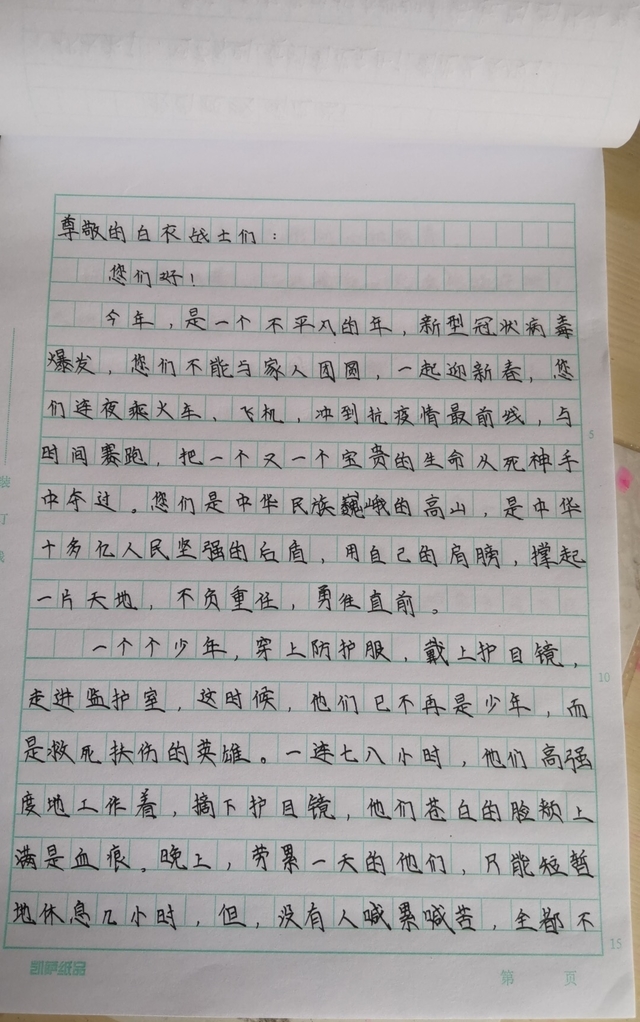 尊敬的白衣战士们：
您们好！
今年，是一个不平凡的年，新型冠状病毒
爆发，您们不能与家人团圆，一起迎新春，您
们连夜乘火车、飞机，冲到抗疫情最前线，与
时间赛跑，把一个又一个宝贵的生命从死神手
中夺过。您们是中华民族巍峨的高山，是中华
十多亿人民坚强的后盾，用自己的肩膀，撑起
一片天地，不负重任，勇往直前。
一个个少年，穿上防护服，戴上护目镜，
走进监护室，这时候，他们已不再是少年，而
是救死扶伤的英雄。一连七八小时，他们高强
度地工作着，摘下护目镜，他们苍白的脸颊上
满是血痕。晚上，劳累一天的他们，只能短暂
地休息几小时，但，没有人喊累喊苦，全都不
5
10
15
装
订
线
第 页